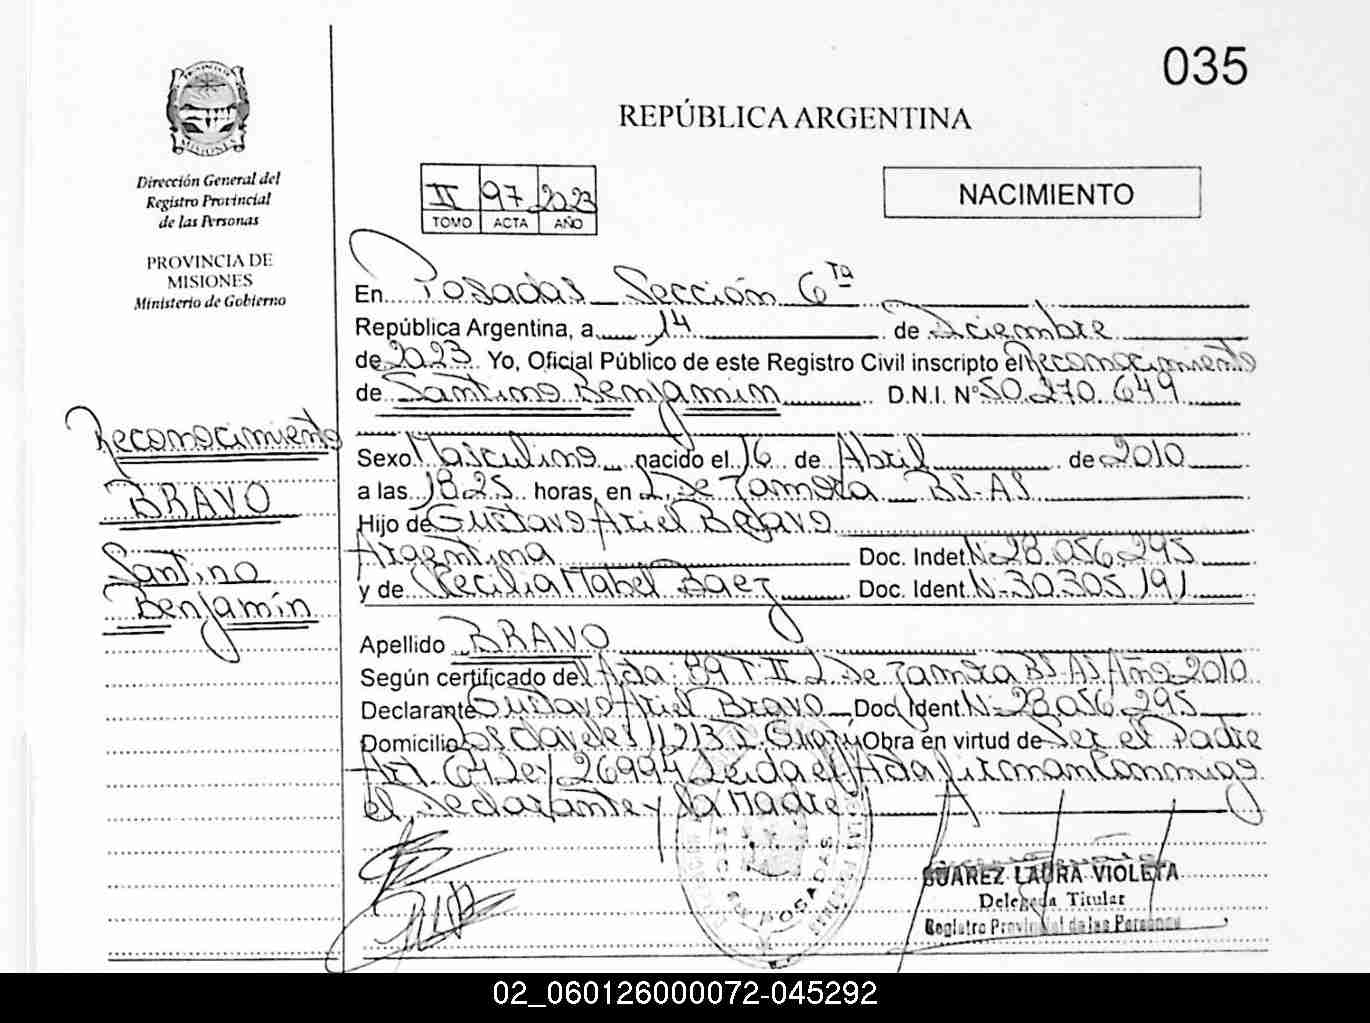 035
REPÚBLICA ARGENTINA
Dirección General del
Registro Provincial
de las Personas
PROVINCIA DE
MISIONES
Ministerio de Gobierno
II 97 2023
TOMO ACTA AÑO
NACIMIENTO
En Posadas Sección 6ta
República Argentina, a 14 de Diciembre
de 2023 Yo, Oficial Público de este Registro Civil inscripto el Reconocimiento
de Santino Benjamin D.N.I. Nº 50.270.649
Reconocimiento
BRAVO
Santino
Benjamín
Sexo Masculino nacido el 16 de Abril de 2010
a las 18.25 horas, en L. De Zamora BS-AS
Hijo de Gustavo Ariel Bravo
Argentina Doc. Indet. Nº 28.056.295
y de Cecilia Mabel Baez Doc. Ident. Nº 30.305.191
Apellido BRAVO
Según certificado del Acta: 89 T. II L De Zamora BS.AS Año 2010
Declarante Gustavo Ariel Bravo Doc. Ident. Nº 28.056.295
Domicilio Los claveles 11213 I. Guazú Obra en virtud de Ser el Padre
Art. 64 Ley 26994 Leida el Acta firman Conmigo
el Declarante y la Madre
POSADAS
SUAREZ LAURA VIOLETA
Delegada Titular
Registro Provincial de las Personas
02_060126000072-045292